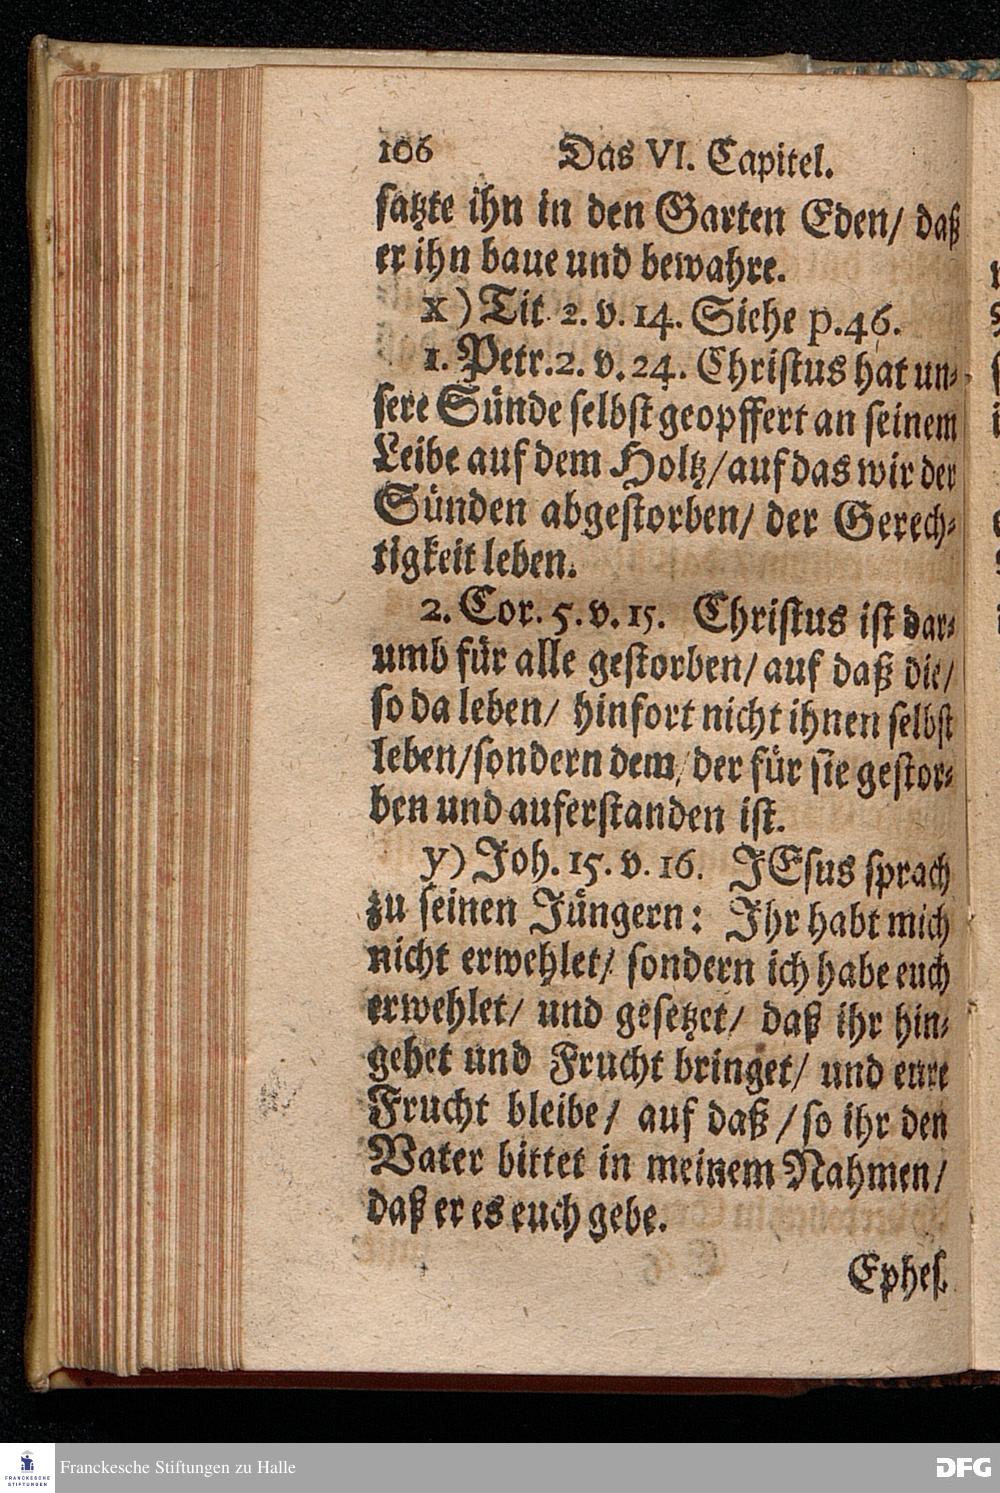 106 Das VI. Capitel.
satzte ihn in den Garten Eden/ daß
er ihn baue und bewahre.
x) Tit. 2. v. 14. Siehe p. 46.
1. Petr. 2. v. 24. Christus hat un-
sere Sünde selbst geopffert an seinem
Leibe auf dem Holtz/ auf das wir der
Sünden abgestorben/ der Gerech-
tigkeit leben.
2. Cor. 5. v. 15. Christus ist dar-
umb für alle gestorben/ auf daß die/
so da leben/ hinfort nicht ihnen selbst
leben/ sondern dem/ der für sie gestor-
ben und auferstanden ist.
y) Joh. 15. v. 16. JEsus sprach
zu seinen Jüngern: Ihr habt mich
nicht erwehlet/ sondern ich habe euch
erwehlet/ und gesetzet/ daß ihr hin-
gehet und Frucht bringet/ und eure
Frucht bleibe/ auf daß/ so ihr den
Vater bittet in meinem Nahmen/
daß er es euch gebe.
Ephes.
FRANCKESCHE
STIFTUNGEN
Franckesche Stiftungen zu Halle
DFG